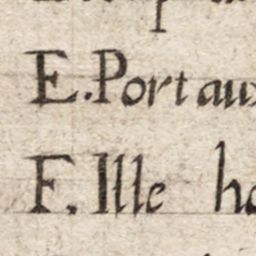 E. Port aux
F. Ille ha